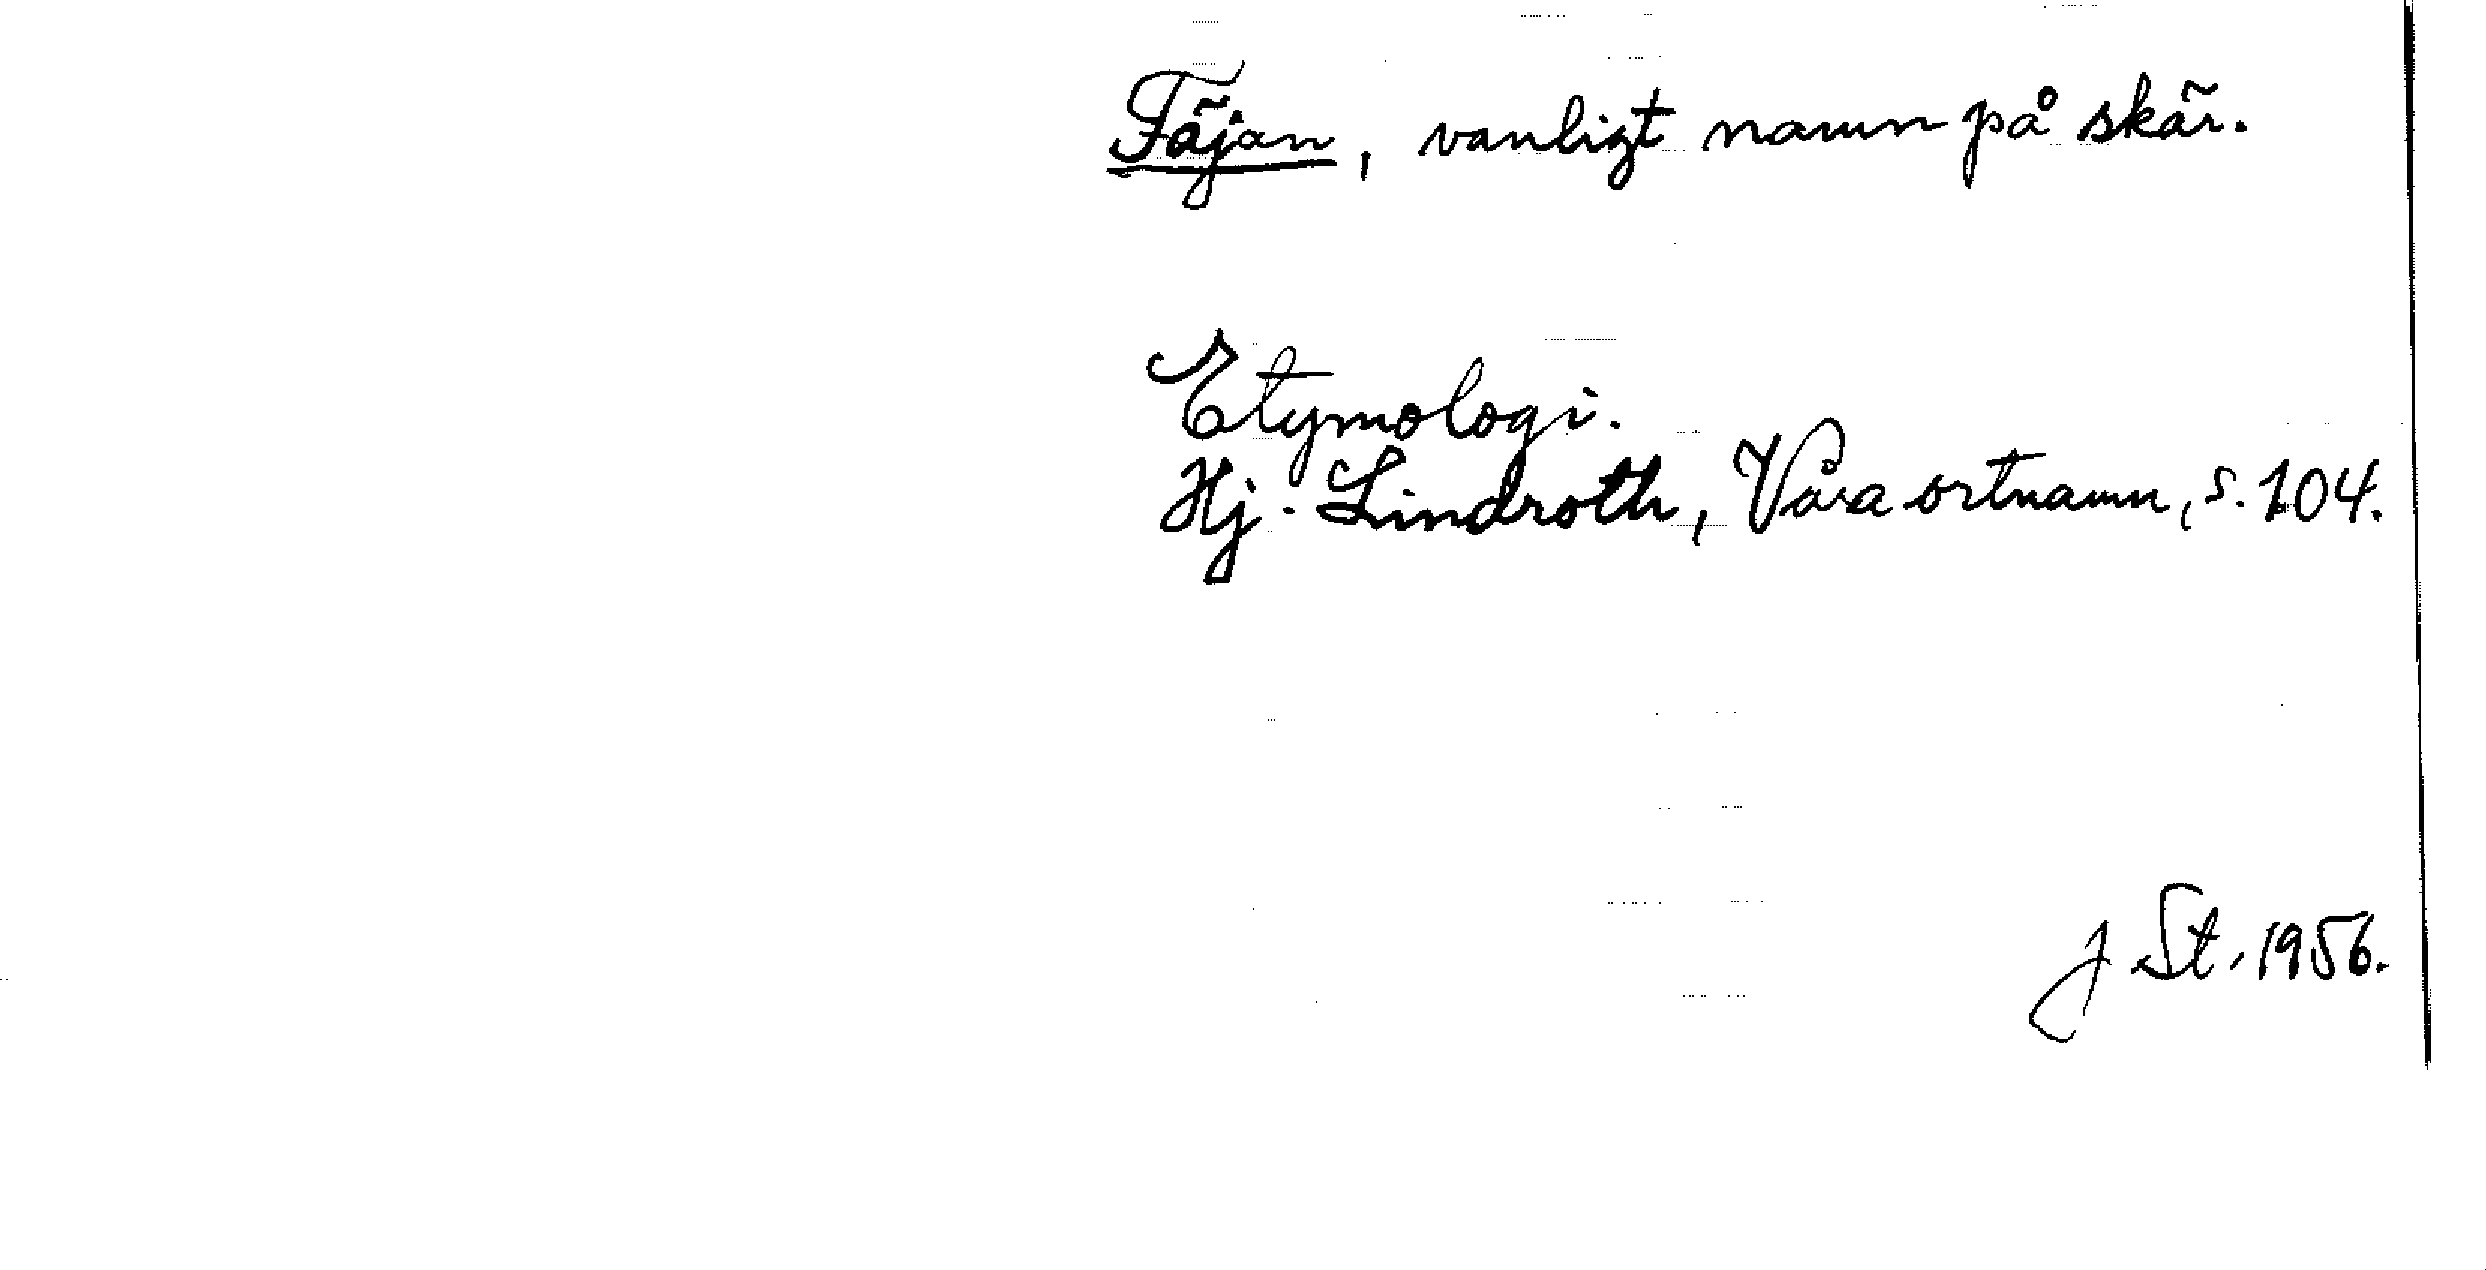 Täjan, vanligt namn på skär.
Etymologi.
Hj. Lindroth, Våra ortnamn, s. 104.
J St. 1956.